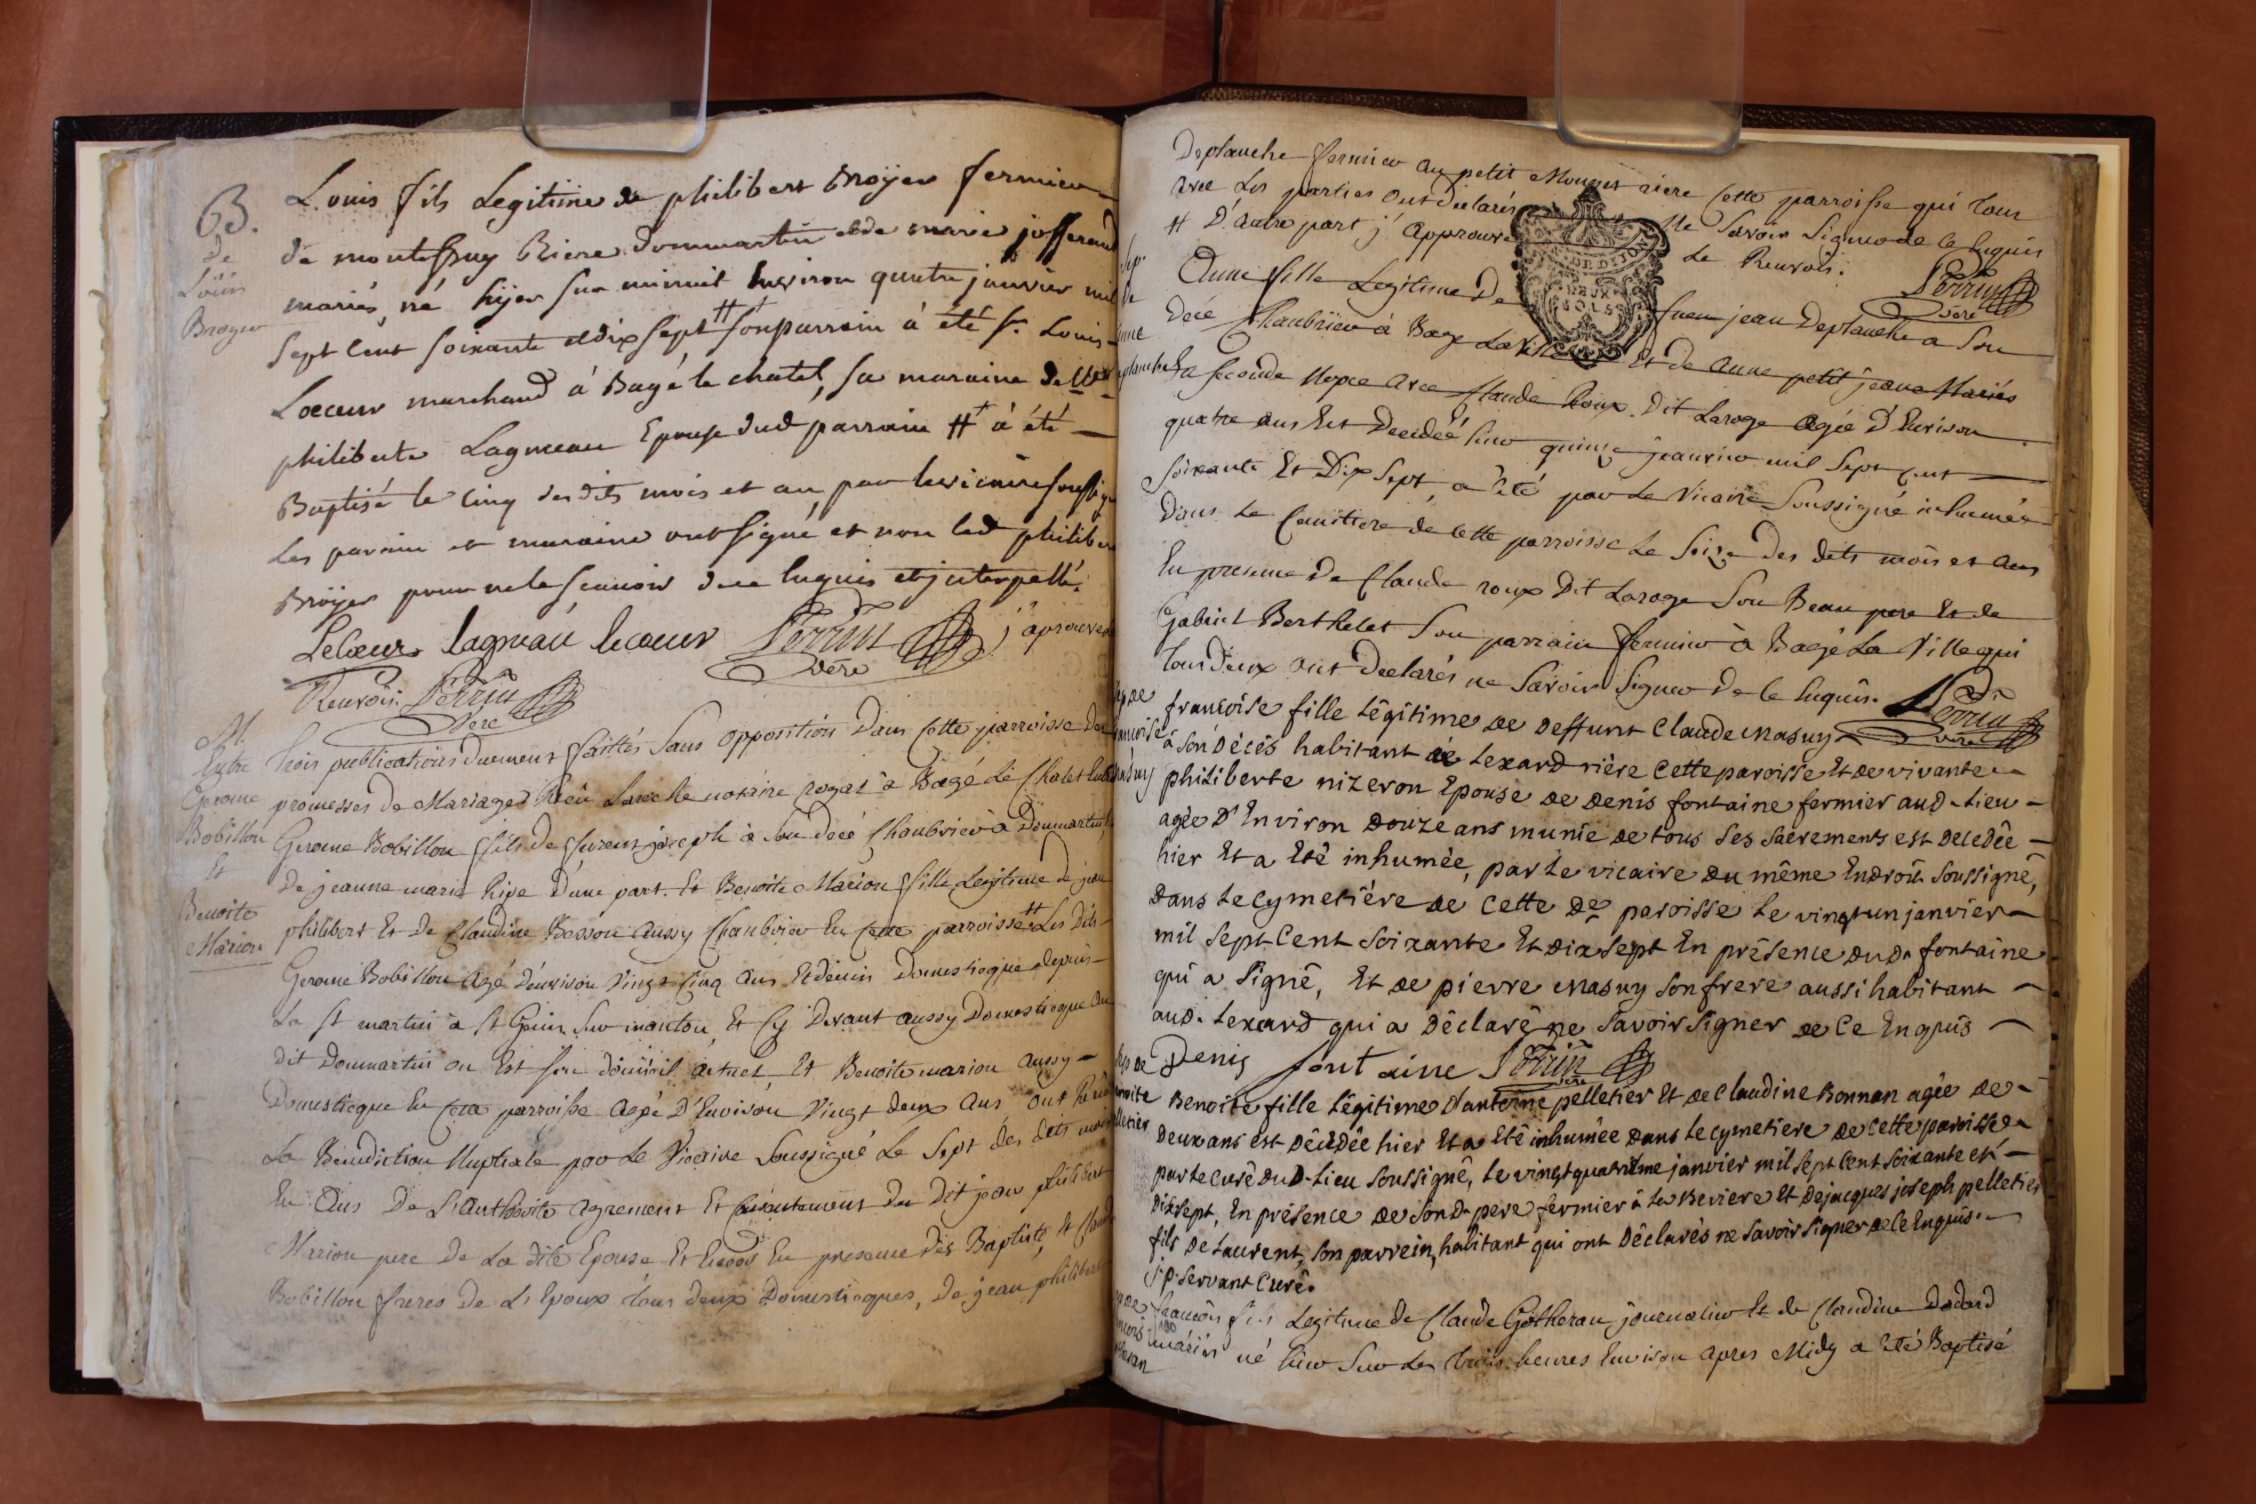 B.
de
Loüis
Broyer
Louis fils Legitime de philibert Broÿer fermier
de montespuy Riere Dommartin et de marie josserand
mariés, né hÿer sur minuit Environ quatre janvier mil
sept Cent soixante et dix sept # son parrain à été sr. Louis
Lecœur marchand à Bagé le chatel, sa maraine delle
philiberte Lagneau Epouse dud parrain # à été
Baptisé le Cinq des dits mois et an, par le vicaire soussigné
Les parain et maraine ont signé et non led philibert
Broÿer pour ne le scavoir de ce Enquis et interpellé.
Lecœur lagneau lecœur Perrin j'aprouve
vire
Renvoi. Perrin
vire
M.
Entre
Gerome
Bobillon
Et
Benoite
Marion
trois publications duement faittes Sans opposition Dans Cette parroisse Des
promesses de Mariage Laroche notaire royal à Bagé Le Chatel Entre
Gerome Bobillon fils de feurent joseph à son décé Chanbrier à Dommartin
De jeanne marie Ripe D'une part. Et Benoite Marion fille Legitime de jean
philibert Et De Claudine Besson aussy Chanbrier En Cette parroisse # Les Dits
Gerome Bobillon agé d'environ Vingt Cinq ans Et demin Domesticque depuis
La st martin à st Genis sur manton, Et Cy Devant aussy Domesticque au
dit Dommartin ou Est son domicil actuel, Et Benoite marion aussy
Domesticque En Cette parroisse agée D'Environ Vingt deux ans ont Recu
La Benediction Nuptiale par Le Vicaire Soussigné Le Sept des dits mois
Et Ans De L'authorité agrement Et Consentement du Dit jean philibert
Marion pere de La dite Epouse Et Encor En presence des Baptiste, Et Claude
Bobillon freres de L'Epoux tous deux Domesticques, De jean philibert
Deplanche fermier au petit Mouget riere Cette parroisse qui tous
avec Les parties ont declarés Ne Savoir Signer de Ce Enquis
# D'autre part j'approuve Le Renvois.
Perrin
vire
GEN. DE DIJON
DEUX
SOLS
Anne fille Legitime De feu jean Deplanche a Son
Décé Chanbrier à Bage La Ville Et De Anne petit jean Mariés
En Seconde Nopce avec Claude Roux Dit Laroge agée D'Environ
quatre ans Est Decedéé hier quinze jeanvier mil Sept Cent
Soixante Et Dix Sept, a été par Le Vicaire Soussigné inhumée
Dans Le Cimitiere de Cette parroisse Le Seize Des dits mois et ans
En presence De Claude roux Dit Laroge Son Beau pere Et de
Gabriel Berthelet Son parrain fermier à Bagé La Ville qui
tous Deux ont Declarés ne Savoir Signer De Ce Enquis.
Perrin
vire
françoise fille Légitime de deffunt Claude masuy
à son Décés habitant de Lexard rière Cette paroisse Et de vivante
philiberte nizeron Epouse de denis fontaine fermier aud. Lieu
agée d'Environ douze ans munie de tous Ses Sacrements est Décédée
hier Et a Eté inhumée, par Le vicaire du même Endroit Soussigné,
dans Le Cymetière de Cette De paroisse Le vingt un janvier
mil Sept Cent Soixante Et dix Sept En présence dud. fontaine
qui a Signé, Et de pierre masuy Son frere aussi habitant
aud. Lexard qui a Déclaré ne Savoir Signer de Ce Enquis
Denis font aine Perrin
vire
Benoite fille Légitime d'antoine pelletier Et de Claudine Bonnan agée de
Deux ans est Décédée hier Et a Eté inhumée dans Le Cymetiere de Cette paroisse
par Le Curé dud. Lieu Soussigné, Le vingt quatrième janvier mil Sept Cent Soixante et
Dix Sept, En présence de Son d. pere fermier à La Beviere Et de jacques joseph pelletier
fils de Laurent, Son parrein, habitant qui ont Déclarés ne Savoir Signer de Ce Enquis.
j. p. Servant Curé.
francois fils Legitime De Claude Gotheran journalier Et de Claudine Dadard
mariés né hier Sur Les trois heures Environ apres Midy a été Baptisé